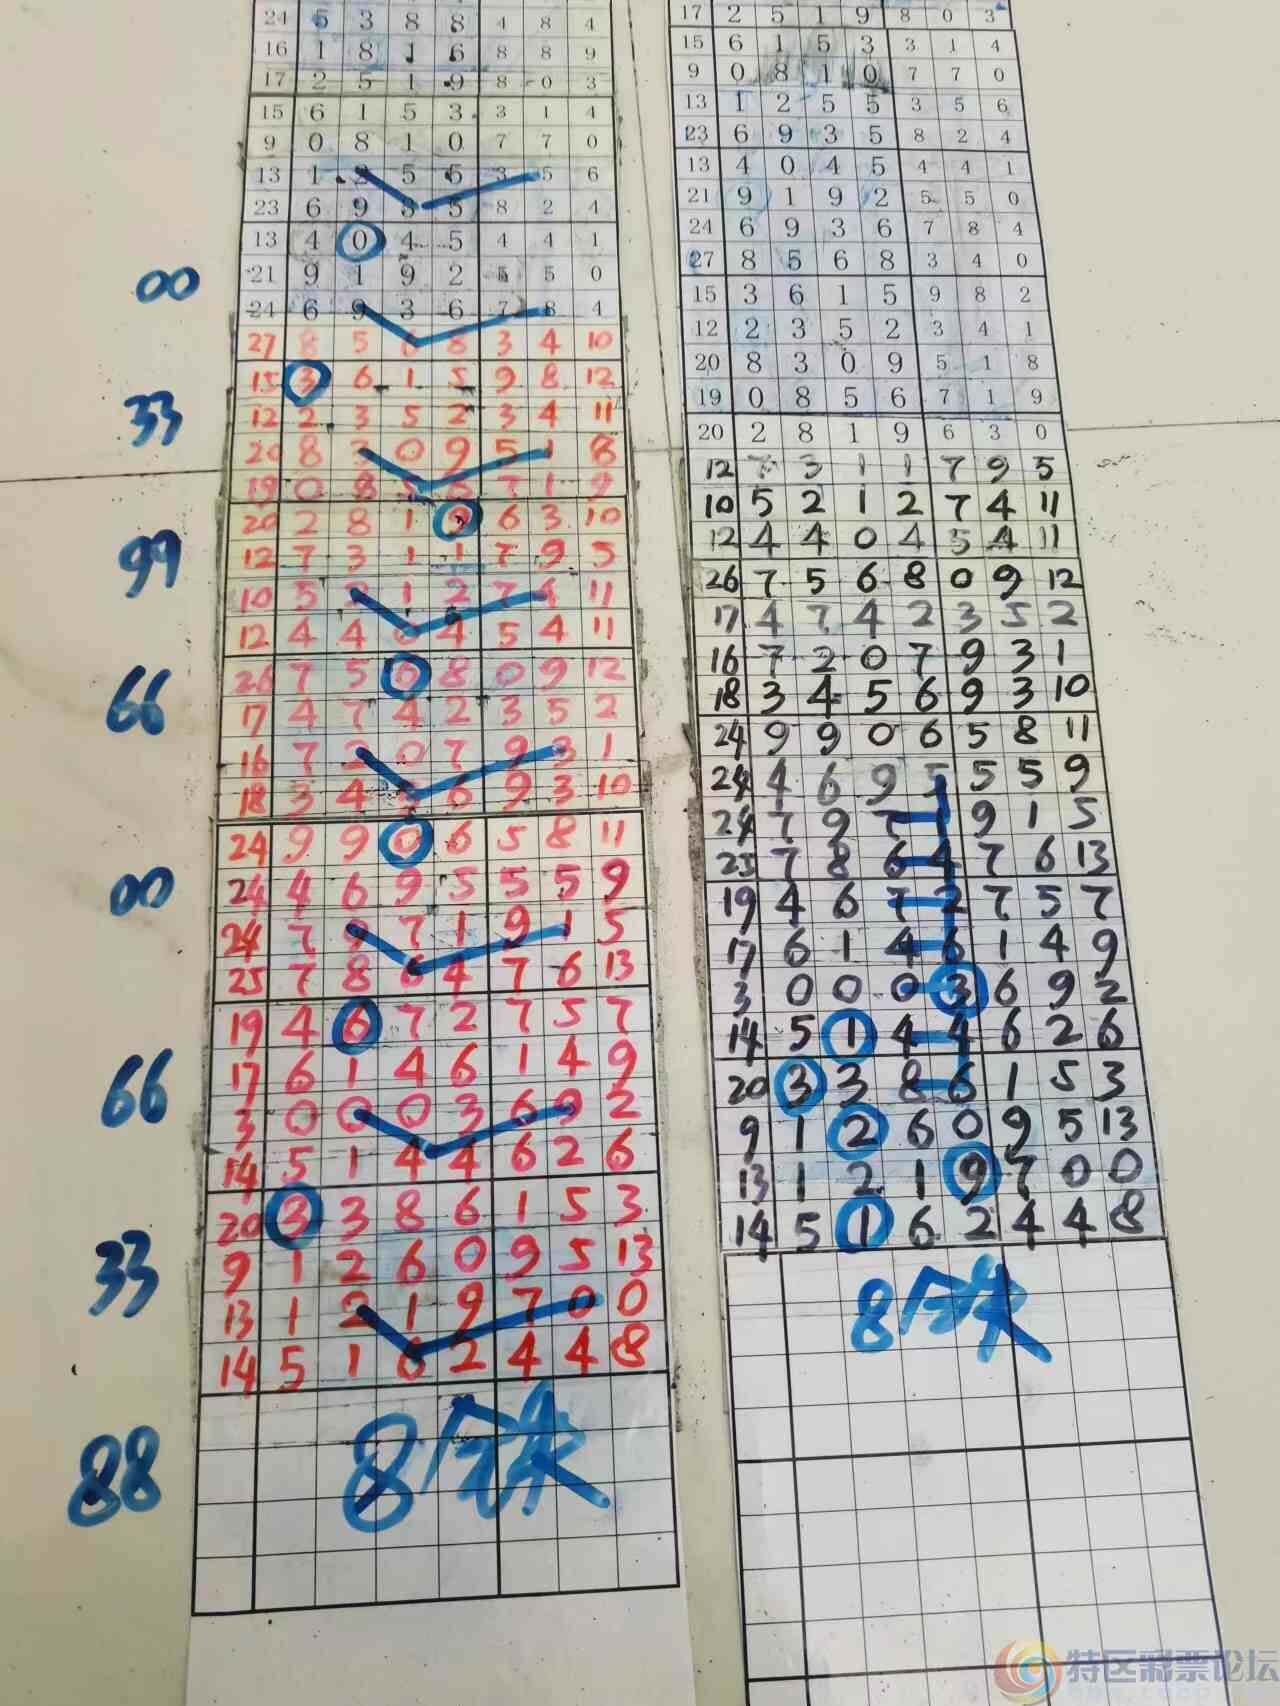 24 5 3 8 8 4 8 4
16 1 8 1 6 8 8 9
17 2 5 1 9 8 0 3
15 6 1 5 3 3 1 4
9 0 8 1 0 7 7 0
13 1 2 5 5 3 5 6
23 6 9 3 5 8 2 4
13 4 0 4 5 4 4 1
21 9 1 9 2 5 5 0
00
24 6 9 3 6 7 8 4
27 8 5 6 8 3 4 10
15 3 6 1 5 9 8 12
33
12 2 3 5 2 3 4 11
20 8 3 0 9 5 1 8
19 0 8 5 6 7 1 9
20 2 8 1 9 6 3 10
99
12 7 3 1 1 7 9 5
10 5 2 1 2 7 4 11
12 4 4 0 4 5 4 11
26 7 5 6 8 0 9 12
66
17 4 7 4 2 3 5 2
16 7 2 0 7 9 3 1
18 3 4 5 6 9 3 10
24 9 9 0 6 5 8 11
00
24 4 6 9 5 5 5 9
24 7 9 7 1 9 1 5
25 7 8 6 4 7 6 13
19 4 6 7 2 7 5 7
66
17 6 1 4 6 1 4 9
3 0 0 0 3 6 9 2
14 5 1 4 4 6 2 6
20 3 3 8 6 1 5 3
33
9 1 2 6 0 9 5 13
13 1 2 1 9 7 0 0
14 5 1 6 2 4 4 8
88
8
17 2 5 1 9 8 0 3
15 6 1 5 3 3 1 4
9 0 8 1 0 7 7 0
13 1 2 5 5 3 5 6
23 6 9 3 5 8 2 4
13 4 0 4 5 4 4 1
21 9 1 9 2 5 5 0
24 6 9 3 6 7 8 4
27 8 5 6 8 3 4 0
15 3 6 1 5 9 8 2
12 2 3 5 2 3 4 1
20 8 3 0 9 5 1 8
19 0 8 5 6 7 1 9
20 2 8 1 9 6 3 0
12 7 3 1 1 7 9 5
10 5 2 1 2 7 4 11
12 4 4 0 4 5 4 11
26 7 5 6 8 0 9 12
17 4 7 4 2 3 5 2
16 7 2 0 7 9 3 1
18 3 4 5 6 9 3 10
24 9 9 0 6 5 8 11
24 4 6 9 5 5 5 9
24 7 9 7 1 9 1 5
25 7 8 6 4 7 6 13
19 4 6 7 2 7 5 7
17 6 1 4 6 1 4 9
3 0 0 0 3 6 9 2
14 5 1 4 4 6 2 6
20 3 3 8 6 1 5 3
9 1 2 6 0 9 5 13
13 1 2 1 9 7 0 0
14 5 1 6 2 4 4 8
8
特区彩票论坛